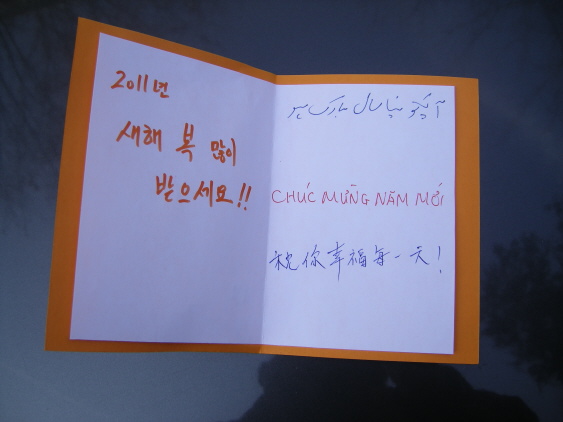 2011년
새해 복 많이
받으세요!!
CHÚC MỪNG NĂM MỚI
祝你幸福每一天!